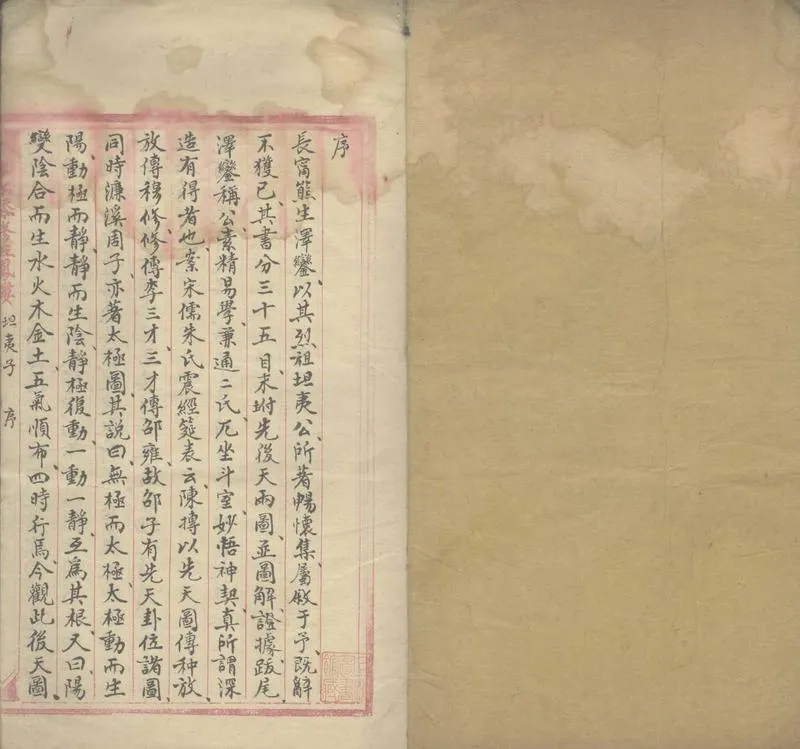 序
長甯熊生澤鑾以其烈祖坦夷公所著暢懷集屬敘于予既辭
不獲已其書分三十五目末坿先後天兩圖並圖解證據跋尾
澤鑾稱公素精易學兼通二氏兀坐斗室妙悟神契真所謂深
造有得者也案宋儒朱氏震經筵表云陳摶以先天圖傳种放
放傳穆修修傳李三才三才傳邵雍故邵子有先天卦位諸圖
同時濂溪周子亦著太極圖其說曰無極而太極太極動而生
陽動極而靜靜而生陰靜極復動一動一靜互為其根又曰陽
變陰合而生水火木金土五氣順布四時行焉今觀此後天圖
坦夷子 序